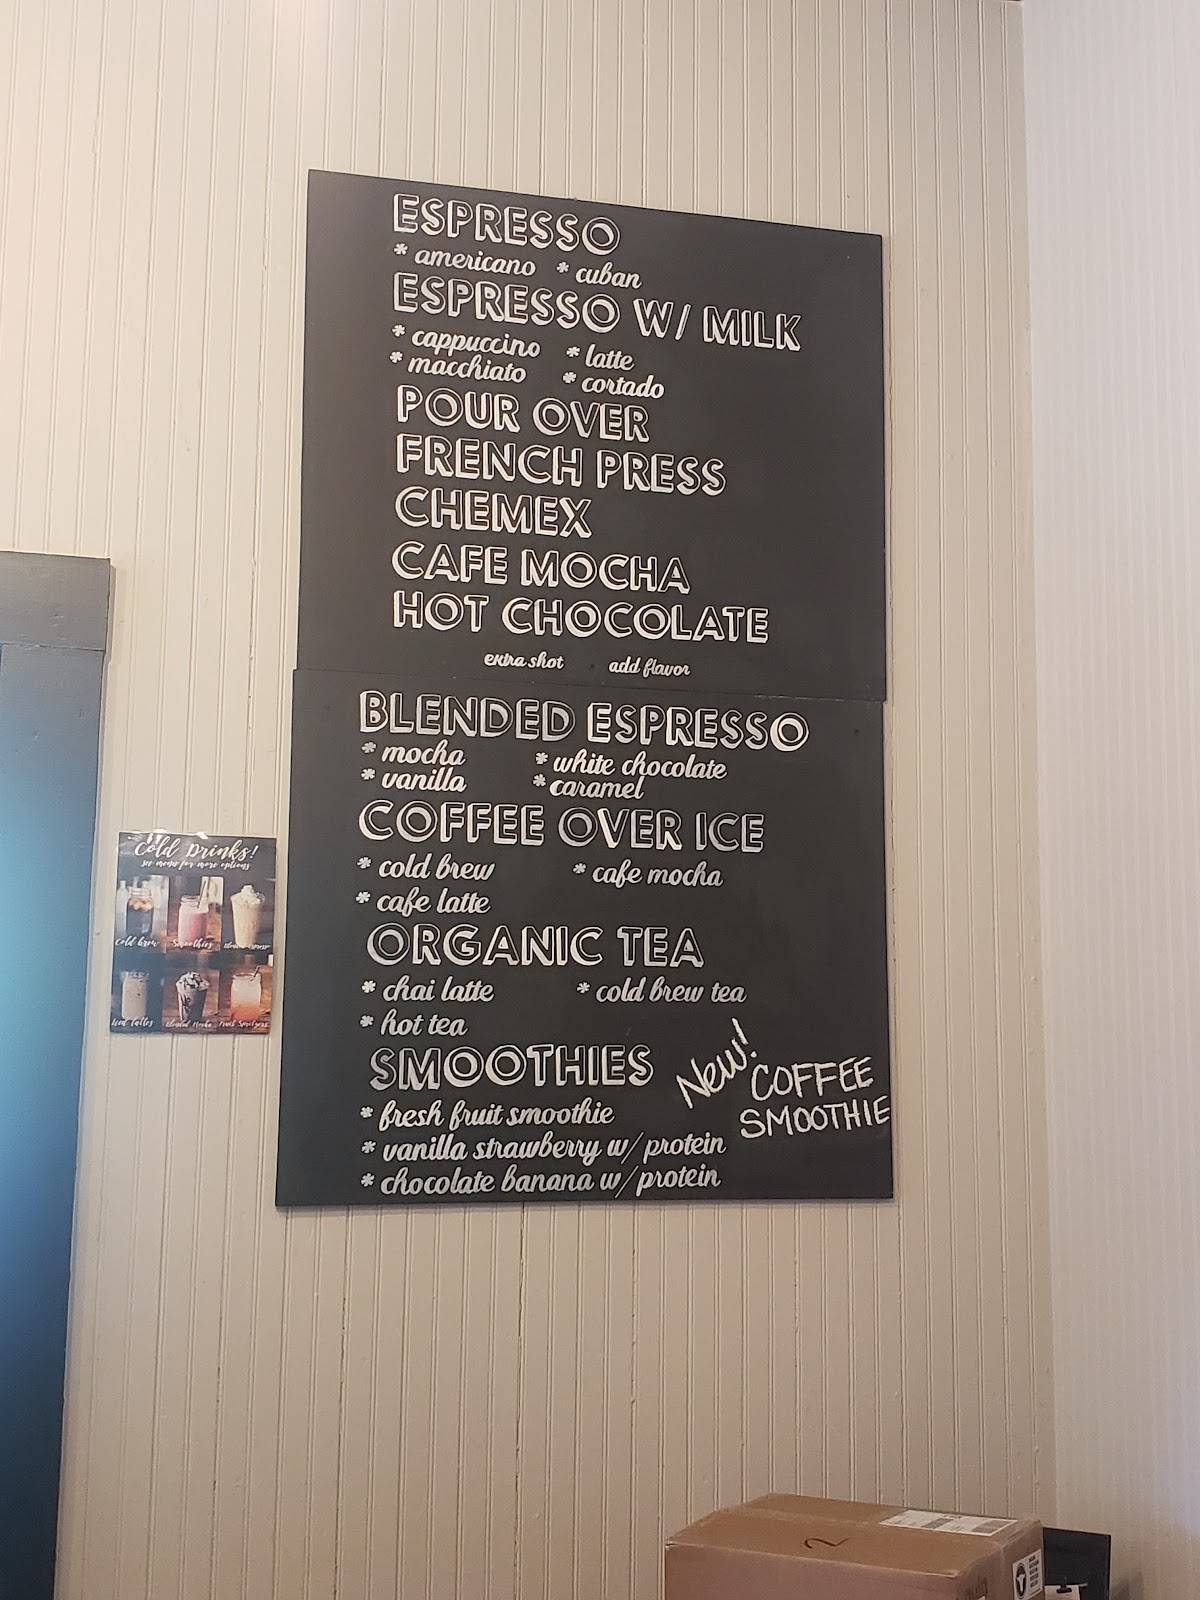 ESPRESSO
* americano * cuban
ESPRESSO W/ MILK
* cappuccino * latte
* macchiato * cortado
POUR OVER
FRENCH PRESS
CHEMEX
CAFE MOCHA
HOT CHOCOLATE
extra shot add flavor
BLENDED ESPRESSO
* mocha * white chocolate
* vanilla * caramel
COFFEE OVER ICE
* cold brew * cafe mocha
* cafe latte
ORGANIC TEA
* chai latte * cold brew tea
* hot tea
SMOOTHIES
* fresh fruit smoothie
* vanilla strawberry w/ protein
* chocolate banana w/ protein
New! COFFEE
SMOOTHIE
Cold Drinks!
see menu for more options
Cold brew Smoothies Blended espresso
Iced Lattes Blended Mocha Fruit Spritzers
2